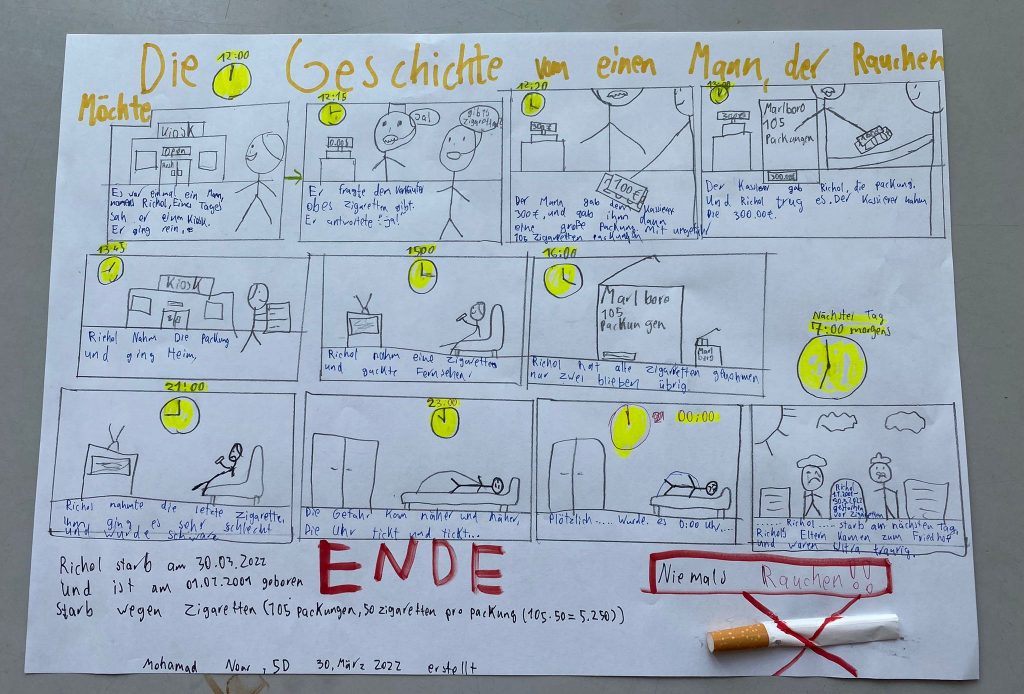 Die Geschichte von einen Mann, der Rauchen
Möchte
12:00
Kiosk
Open
Es war einmal ein Mann,
namens Richol, Eines Tages
Sah er einen Kiosk.
Er ging rein,
12:15
0.00$
Ja!
gibts
zigaretten
Er fragte den Verkäufer
obes Zigaretten gibt.
Er antwortete: "Ja!"
12:20
300$
100€
Der Mann gab dem Kassierer
300€, und gab ihn dann
eine große Packung. Mit ungefähr
105 zigaretten packungen
13:00
Marlboro
105
Packungen
300.00€
Der Kassierer gab Richol, die packung.
Und Richol trug es. Der Kassierer nahm
Die 300.00€.
13:45
Kiosk
Richol Nahm Die Packung
und ging Heim,
15:00
Richol nahm eine Zigaretten
und guckte Fernsehen!
16:00
Marlboro
105
Packungen
Marl
boro
Richol hat alle zigaretten genommen
nur zwei blieben übrig.
Nächster Tag
7:00 morgens
21:00
Richol nahmte die letzte Zigarette,
Und ging es sehr schlecht
und wurde schwarz
23:00
Die Gefahr kam näher und näher,
Die Uhr tickt und tickt...
00:00
Plötzlich..... Wurde es 0:00 Uhr....
Richol
gestorben
vor Zigaretten
..... Richol .... starb am nächsten Tag,
Richols Eltern kamen zum Friedhof
und waren Ultra traurig.
ENDE
Richol starb am 30.03.2022
Und ist am 01.07.2001 geboren
Starb wegen Zigaretten (105 packungen, 50 zigaretten pro packung (105·50=5.250))
Niemals Rauchen!!
Mohamad Nour, 5D 30, März 2022 erstellt